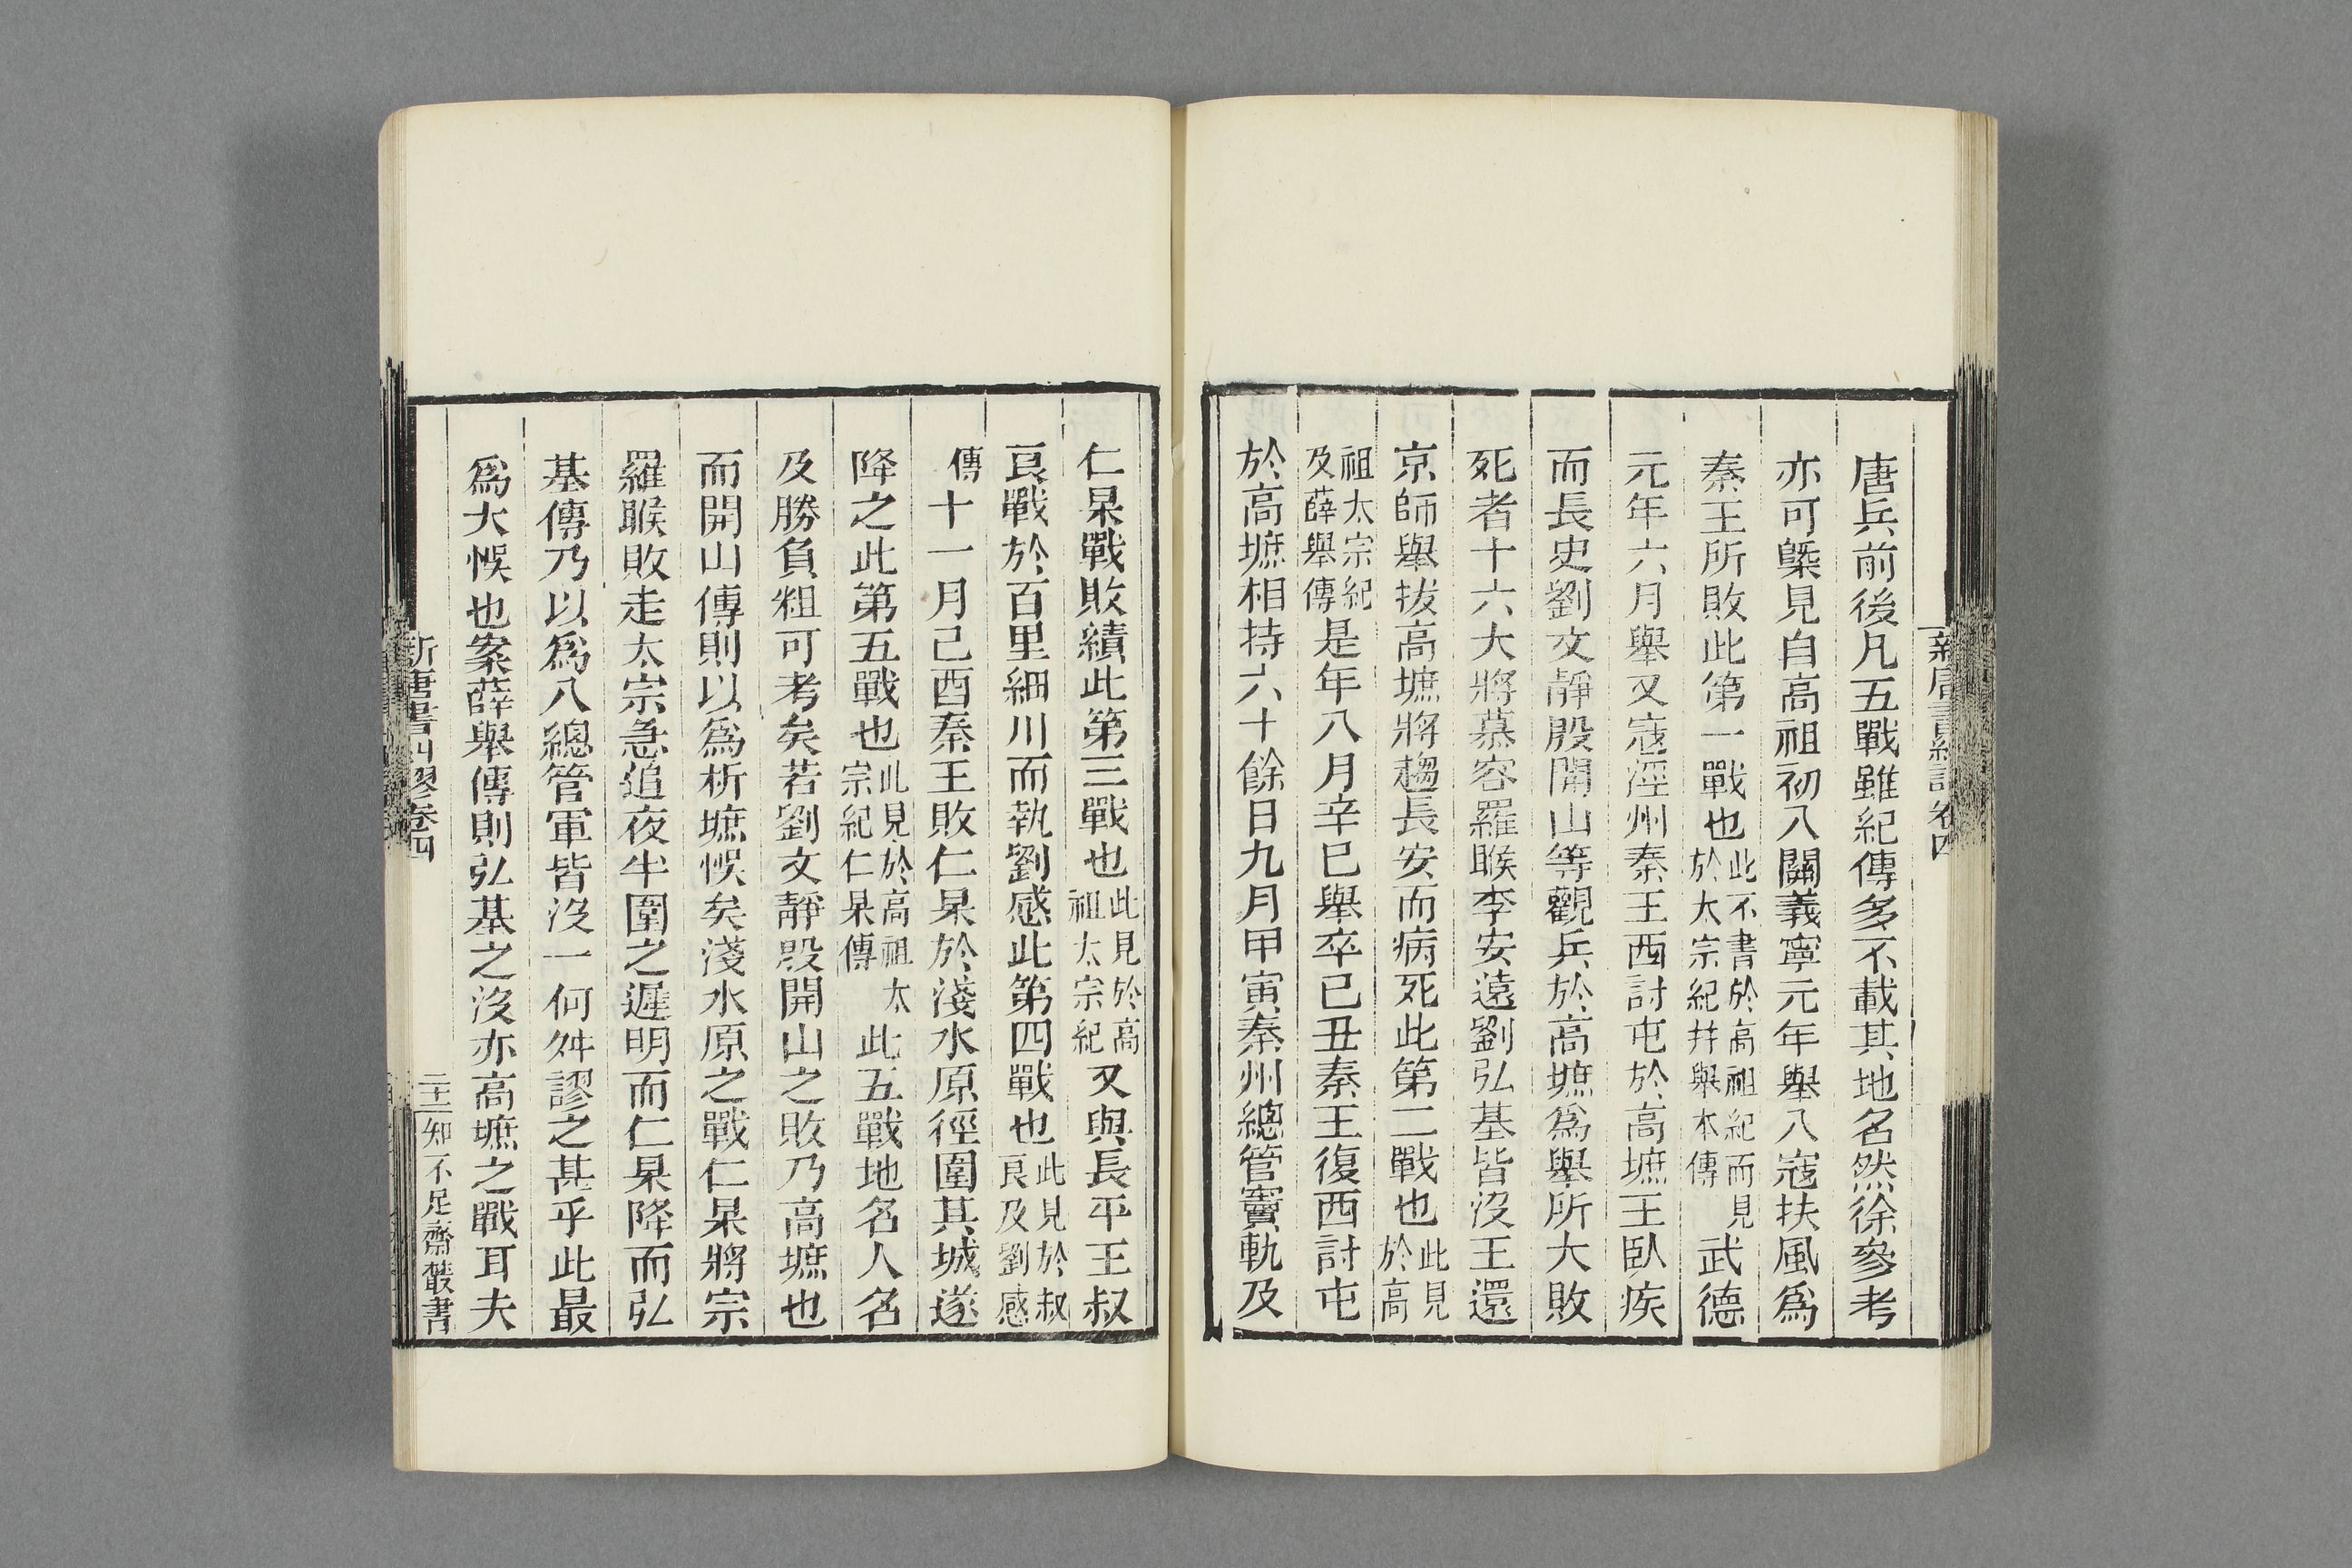 唐兵前後凡五戰雖紀傳多不載其地名然徐參考
亦可槩見自高祖初入關義寧元年舉入寇扶風爲
秦王所敗此第一戰也此不書於高祖紀而見於太宗紀并舉本傳武德
元年六月舉又寇涇州秦王西討屯於高墌王臥疾
而長史劉文靜殷開山等觀兵於高墌爲舉所大敗
死者十六大將慕容羅睺李安遠劉弘基皆沒王還
京師舉拔高墌將趨長安而病死此第二戰也此見於高
祖太宗紀及薛舉傳是年八月辛巳舉卒已丑秦王復西討屯
於高墌相持六十餘日九月甲寅秦州總管竇軌及
仁杲戰敗績此第三戰也此見於高祖太宗紀又與長平王叔
良戰於百里細川而執劉感此第四戰也此見於叔良及劉感
傳十一月己酉秦王敗仁杲於淺水原徑圍其城遂
降之此第五戰也此見於高祖太宗紀仁杲傳此五戰地名人名
及勝負粗可考矣若劉文靜殷開山之敗乃高墌也
而開山傳則以爲析墌悞矣淺水原之戰仁杲將宗
羅睺敗走太宗急追夜半圍之遲明而仁杲降而弘
基傳乃以爲八總管軍皆沒一何舛謬之甚乎此最
爲大悞也案薛舉傳則弘基之沒亦高墌之戰耳夫
新唐書糾謬卷四
二十一
知不足齋叢書